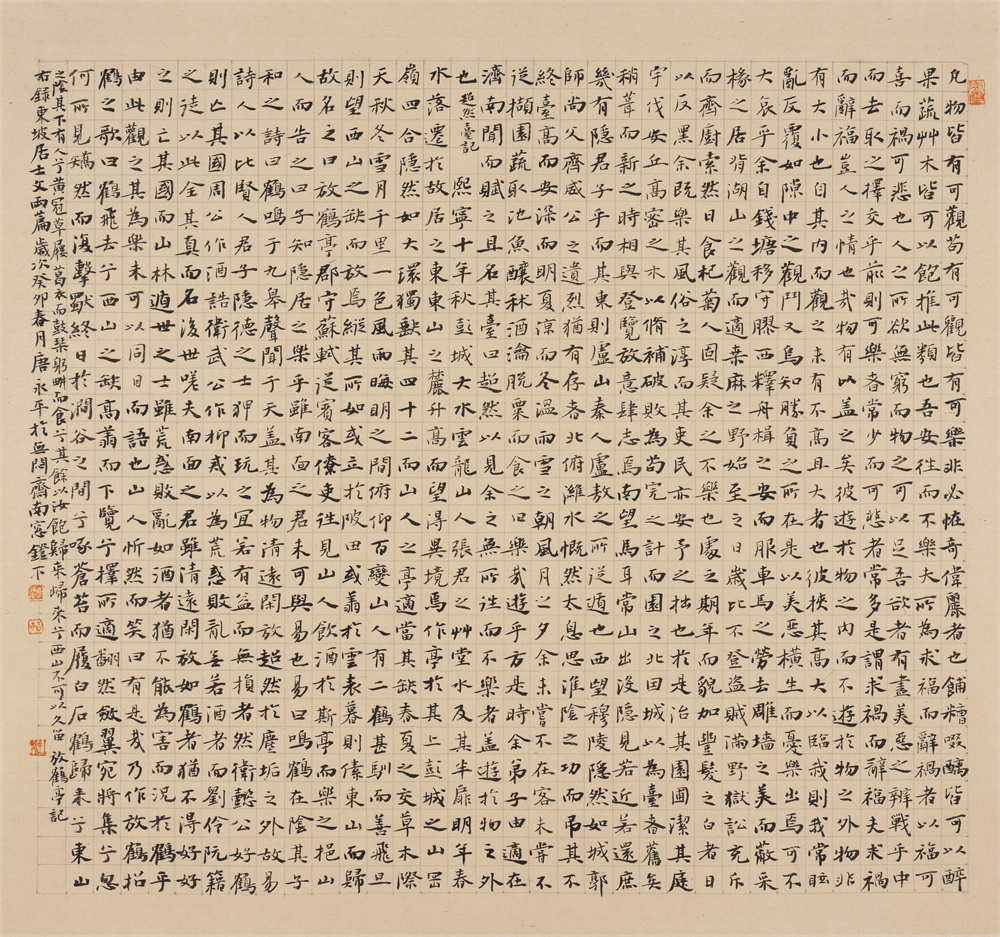 凡物皆有可觀苟有可觀皆有可樂非必恠奇偉麗者也餔糟啜醨皆可以醉
果蔬艸木皆可以飽推此類也吾安往而不樂夫所為求福而辭禍者以福可
喜而禍可悲也人之所欲無窮而物之可以足吾欲者有盡美惡之辨戰乎中
而去取之擇交乎前則可樂者常少而可悲者常多是謂求禍而辭福夫求禍
而辭福豈人之情也哉物有以蓋之矣彼遊於物之內而不遊於物之外物非
有大小也自其內而觀之未有不高且大者也彼挾其高大以臨我則我常眩
亂反覆如隙中之觀鬥又烏知勝負之所在是以美惡橫生而憂樂出焉可不
大哀乎余自錢塘移守膠西釋舟楫之安而服車馬之勞去雕墻之美而蔽采
椽之居背湖山之觀而適桑麻之野始至之日歲比不登盜賊滿野獄訟充斥
而齋廚索然日食杞菊人固疑余之不樂也處之期年而貌加豐髮之白者日
以反黑余既樂其風俗之淳而其吏民亦安予之拙也於是治其園圃潔其庭
宇伐安丘高密之木以脩補破敗為苟完之計而園之北因城以為臺者舊矣
稍葺而新之時相與登覽放意肆志焉南望馬耳常山出沒隱見若近若遠庶
幾有隱君子乎而其東則盧山秦人盧敖之所從遁也西望穆陵隱然如城郭
師尚父齊威公之遺烈猶有存者北俯濰水慨然太息思淮陰之功而弔其不
終臺高而安深而明夏涼而冬溫雨雪之朝風月之夕余未嘗不在客未嘗不
從擷園蔬取池魚釀秫酒瀹脫粟而食之曰樂哉遊乎方是時余弟子由適在
濟南聞而賦之且名其臺曰超然以見余之無所往而不樂者蓋遊於物之外
也 超然臺記 熙寧十年秋彭城大水雲龍山人張君之艸堂水及其半扉明年春
水落遷於故居之東東山之麓升高而望得異境焉作亭於其上彭城之山岡
嶺四合隱然如大環獨缺其四十二而山人之亭適當其缺春夏之交草木際
天秋冬雪月千里一色風雨晦明之間俯仰百變山人有二鶴甚馴而善飛旦
則望西山之缺而放焉縱其所如或立於陂田或翥於雲表暮則傃東山而歸
故名之曰放鶴亭郡守蘇軾從賓客僚吏往見山人飲酒於斯亭而樂之挹山
人而告之曰子知隱居之樂乎雖南面之君未可與易也易曰鳴鶴在陰其子
和之詩曰鶴鳴于九皋聲聞于天蓋其為物清遠閑放超然於塵垢之外故易
詩人以比賢人君子隱德之士狎而玩之宜若有益而無損者然衛懿公好鶴
則亡其國周公作酒誥衛武公作抑戒以為荒惑敗亂無若酒者而劉伶阮籍
之徒以此全其真而名後世嗟夫南面之君雖清遠閑放如鶴者猶不得好好
之則亡其國而山林遁世之士雖荒惑敗亂如酒者猶不能為害而況於鶴乎
由此觀之其為樂未可以同日而語也山人忻然而笑曰有是哉乃作放鶴招
鶴之歌曰鶴飛去兮西山之缺高翥而下覽兮擇所適翻然斂翼宛將集兮忽
何所見矯然而復擊獨終日於澗谷之間兮啄蒼苔而履白石鶴歸來兮東山
之陰其下有人兮黃冠草屨葛衣而鼓琴躬畊而食兮其餘以汝飽歸來歸來兮西山不可以久留 放鶴亭記
右錄東坡居士文兩篇歲次癸卯春月唐永平於無悶齋南窗鐙下